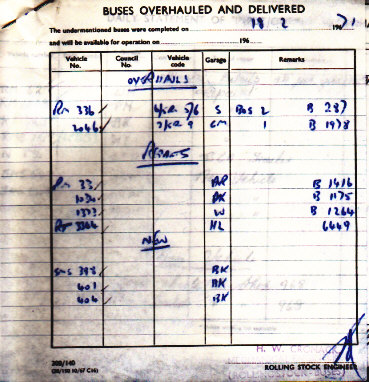 BUSES OVERHAULED AND DELIVERED
The undermentioned buses were completed on 18 2 1971
and will be available for operation on 196
Vehicle No. Council No. Vehicle code Garage Remarks
OVERHAULS
RM 336 5/6 S BOS 2 B 287
2046 9 CM 1 B 1978
REPAINTS
RM 33 B 1416
1030 BK B 1175
1373 W B 1264
3364 HL 6449
NEW
SMS 398 BK
401 BK
404 BK
200/140
ROLLING STOCK ENGINEER